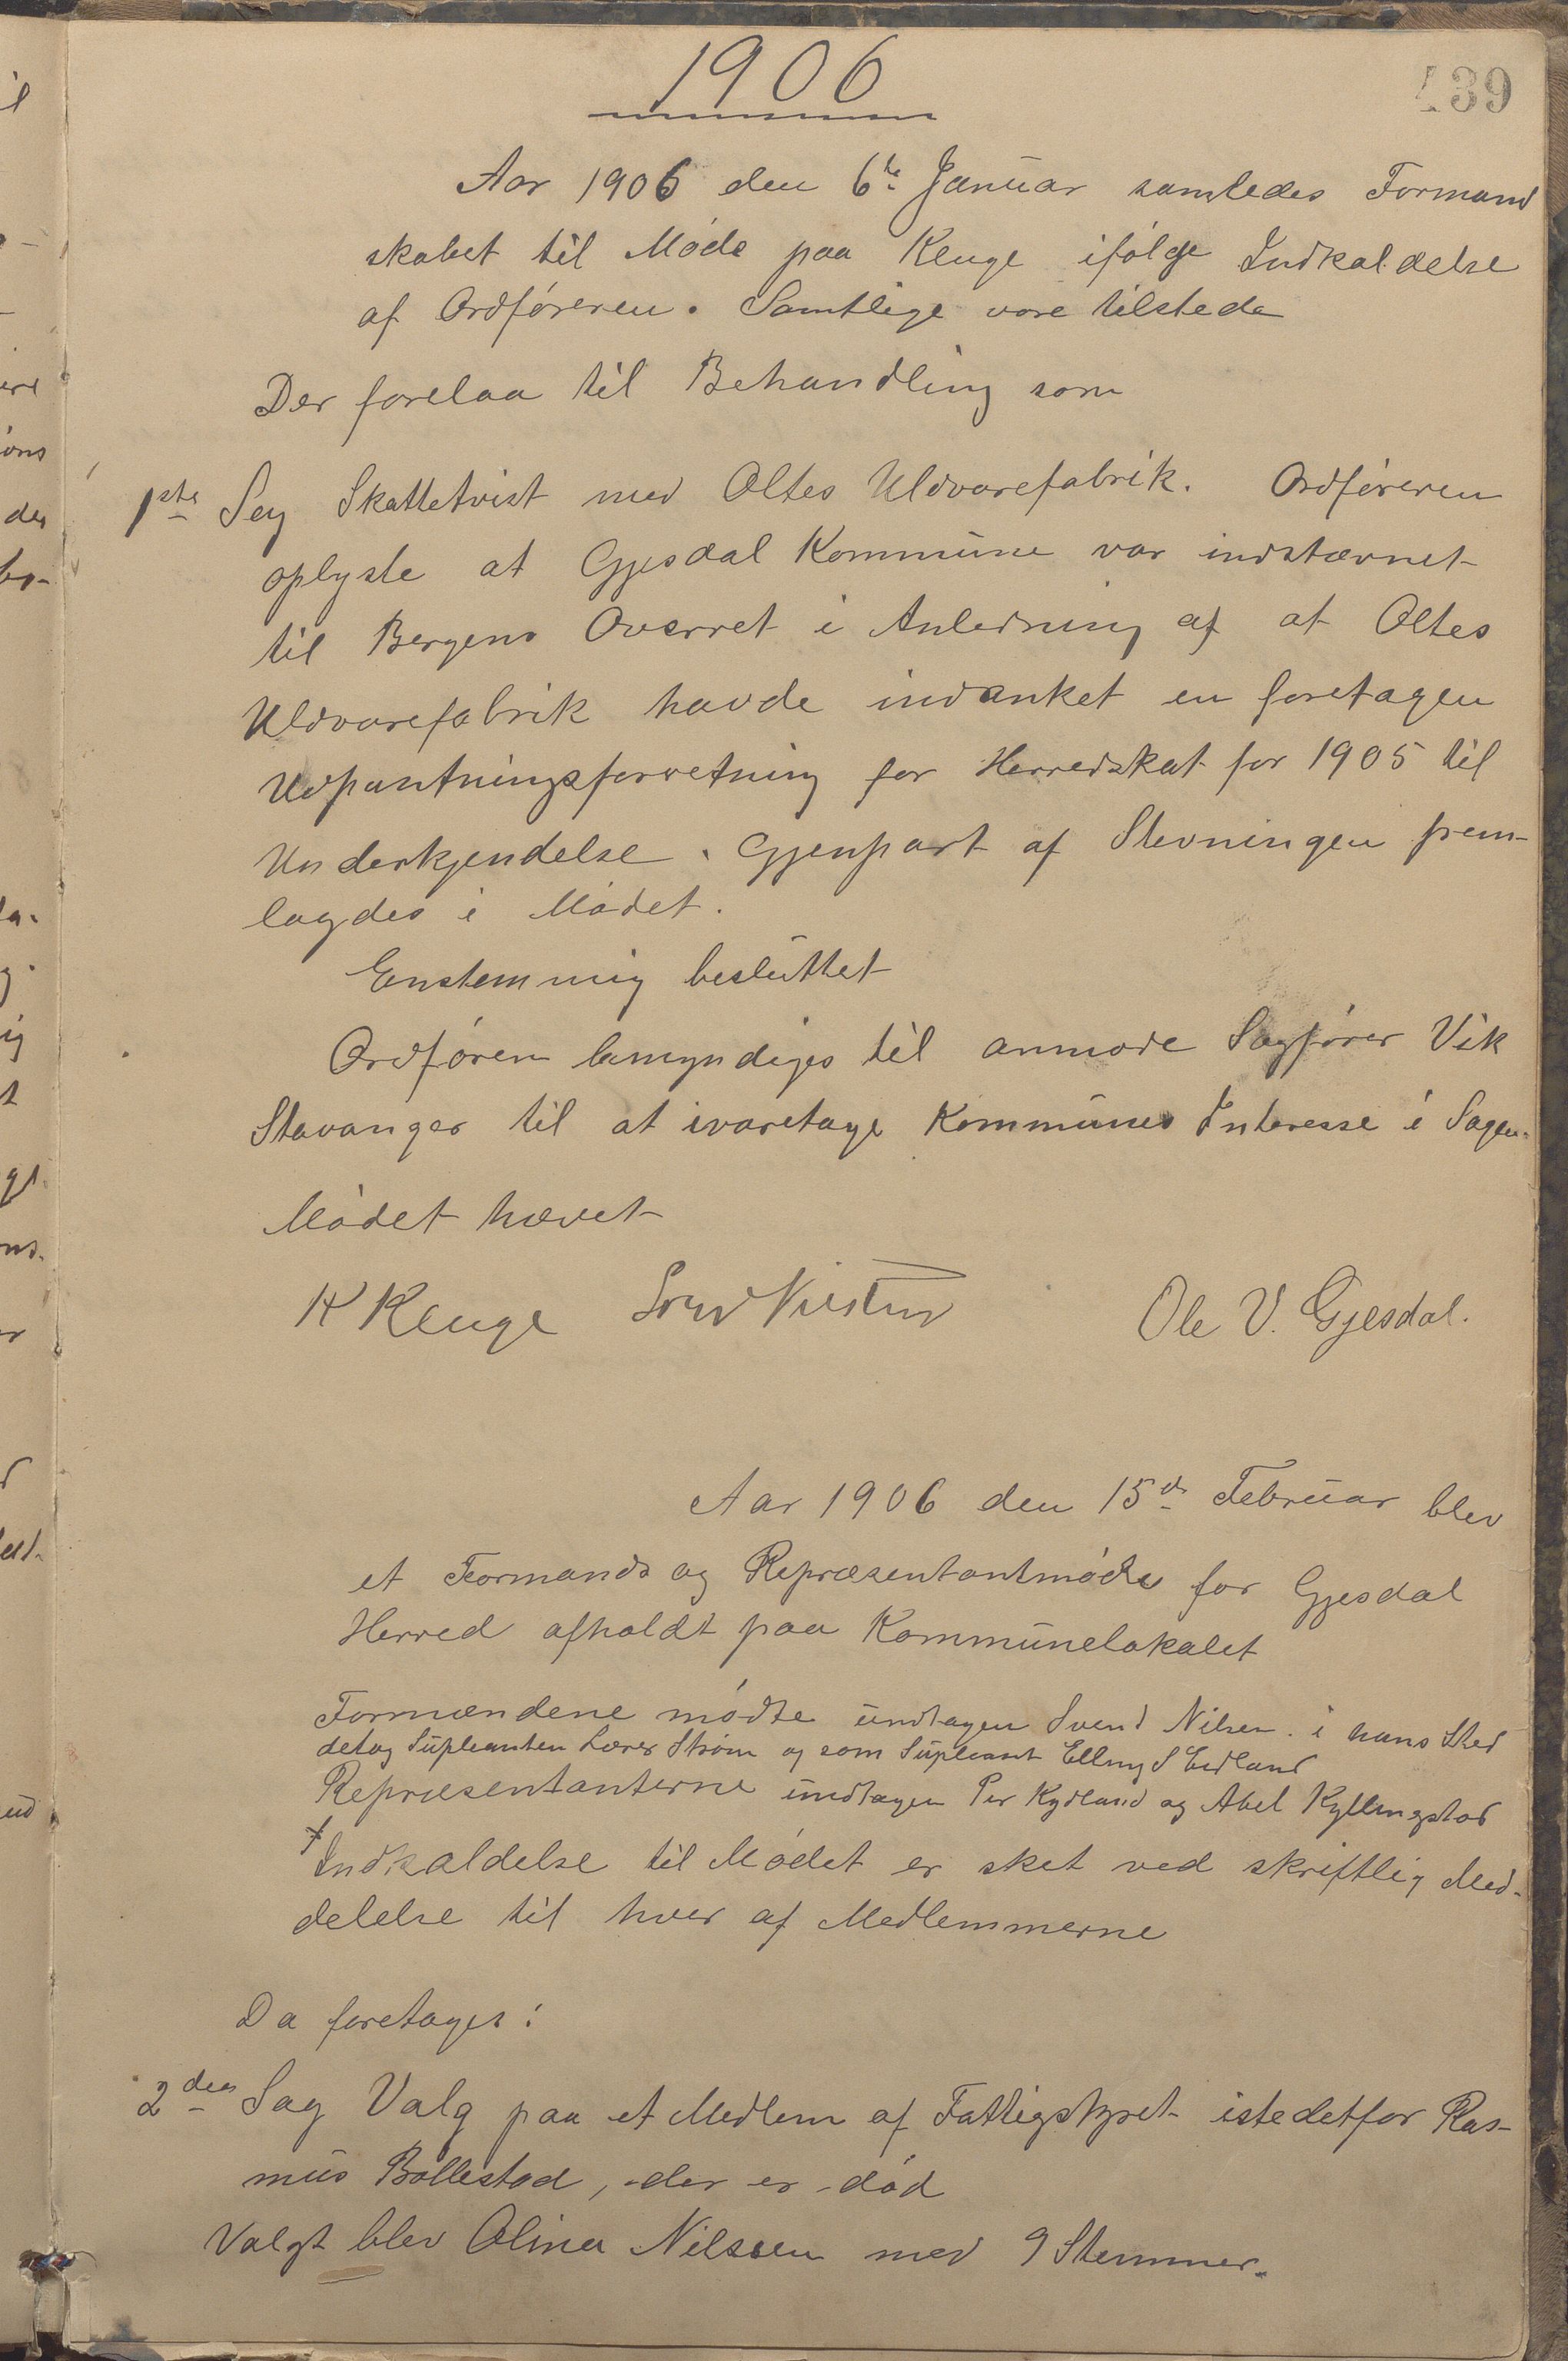 1906
139
Aar 1906 den 6te Januar samledes Formand
skabet til Møde paa Kluge ifølge Indkaldelse
af Ordføreren. Samtlige vare tilstede
Der forelaa til Behandling som
1ste Sag Skattetvist med Oltes Uldvarefabrik. Ordføreren
oplyste at Gjesdal Kommune var indstævnet
til Bergens Overret i Anledning af at Oltes
Uldvarefabrik havde indanket en foretagen
Udpantningsforretning for Herredskat for 1905 til
Underkjendelse. Gjenpart af Stevningen frem-
lagdes i Mødet.
Enstemmig besluttet
Ordføren bemyndiges til anmode Sagfører Vik
Stavanger til at ivaretage Kommunes Interesse i Sagen.
Mødet hævet
K Kluge
Ole V. Gjesdal.
Aar 1906 den 15de Februar blev
et Formands og Repræsentantmøde for Gjesdal
Herred afholdt paa Kommunelokalet
Formændene mødte undtagen Svend Nilsen. i hans Sted
detog Supleanten Lærer Strøm og som Supleant Elling S Eidland
Repræsentanterne undtagen Per Kydland og Abel Kyllingstad
Indkaldelse til Mødet er sket ved skriftlig Med-
delelse til hver af Medlemmerne
Da foretages:
2den Sag Valg paa et Medlem af Fattigstyret istedetfor Ras-
mus Bollestad, der er død
Valgt blev Olina Nilssen med 9 Stemmer.